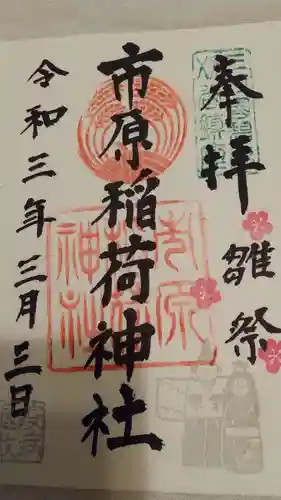 奉拝
雛祭
市原稲荷神社
令和三年三月三日